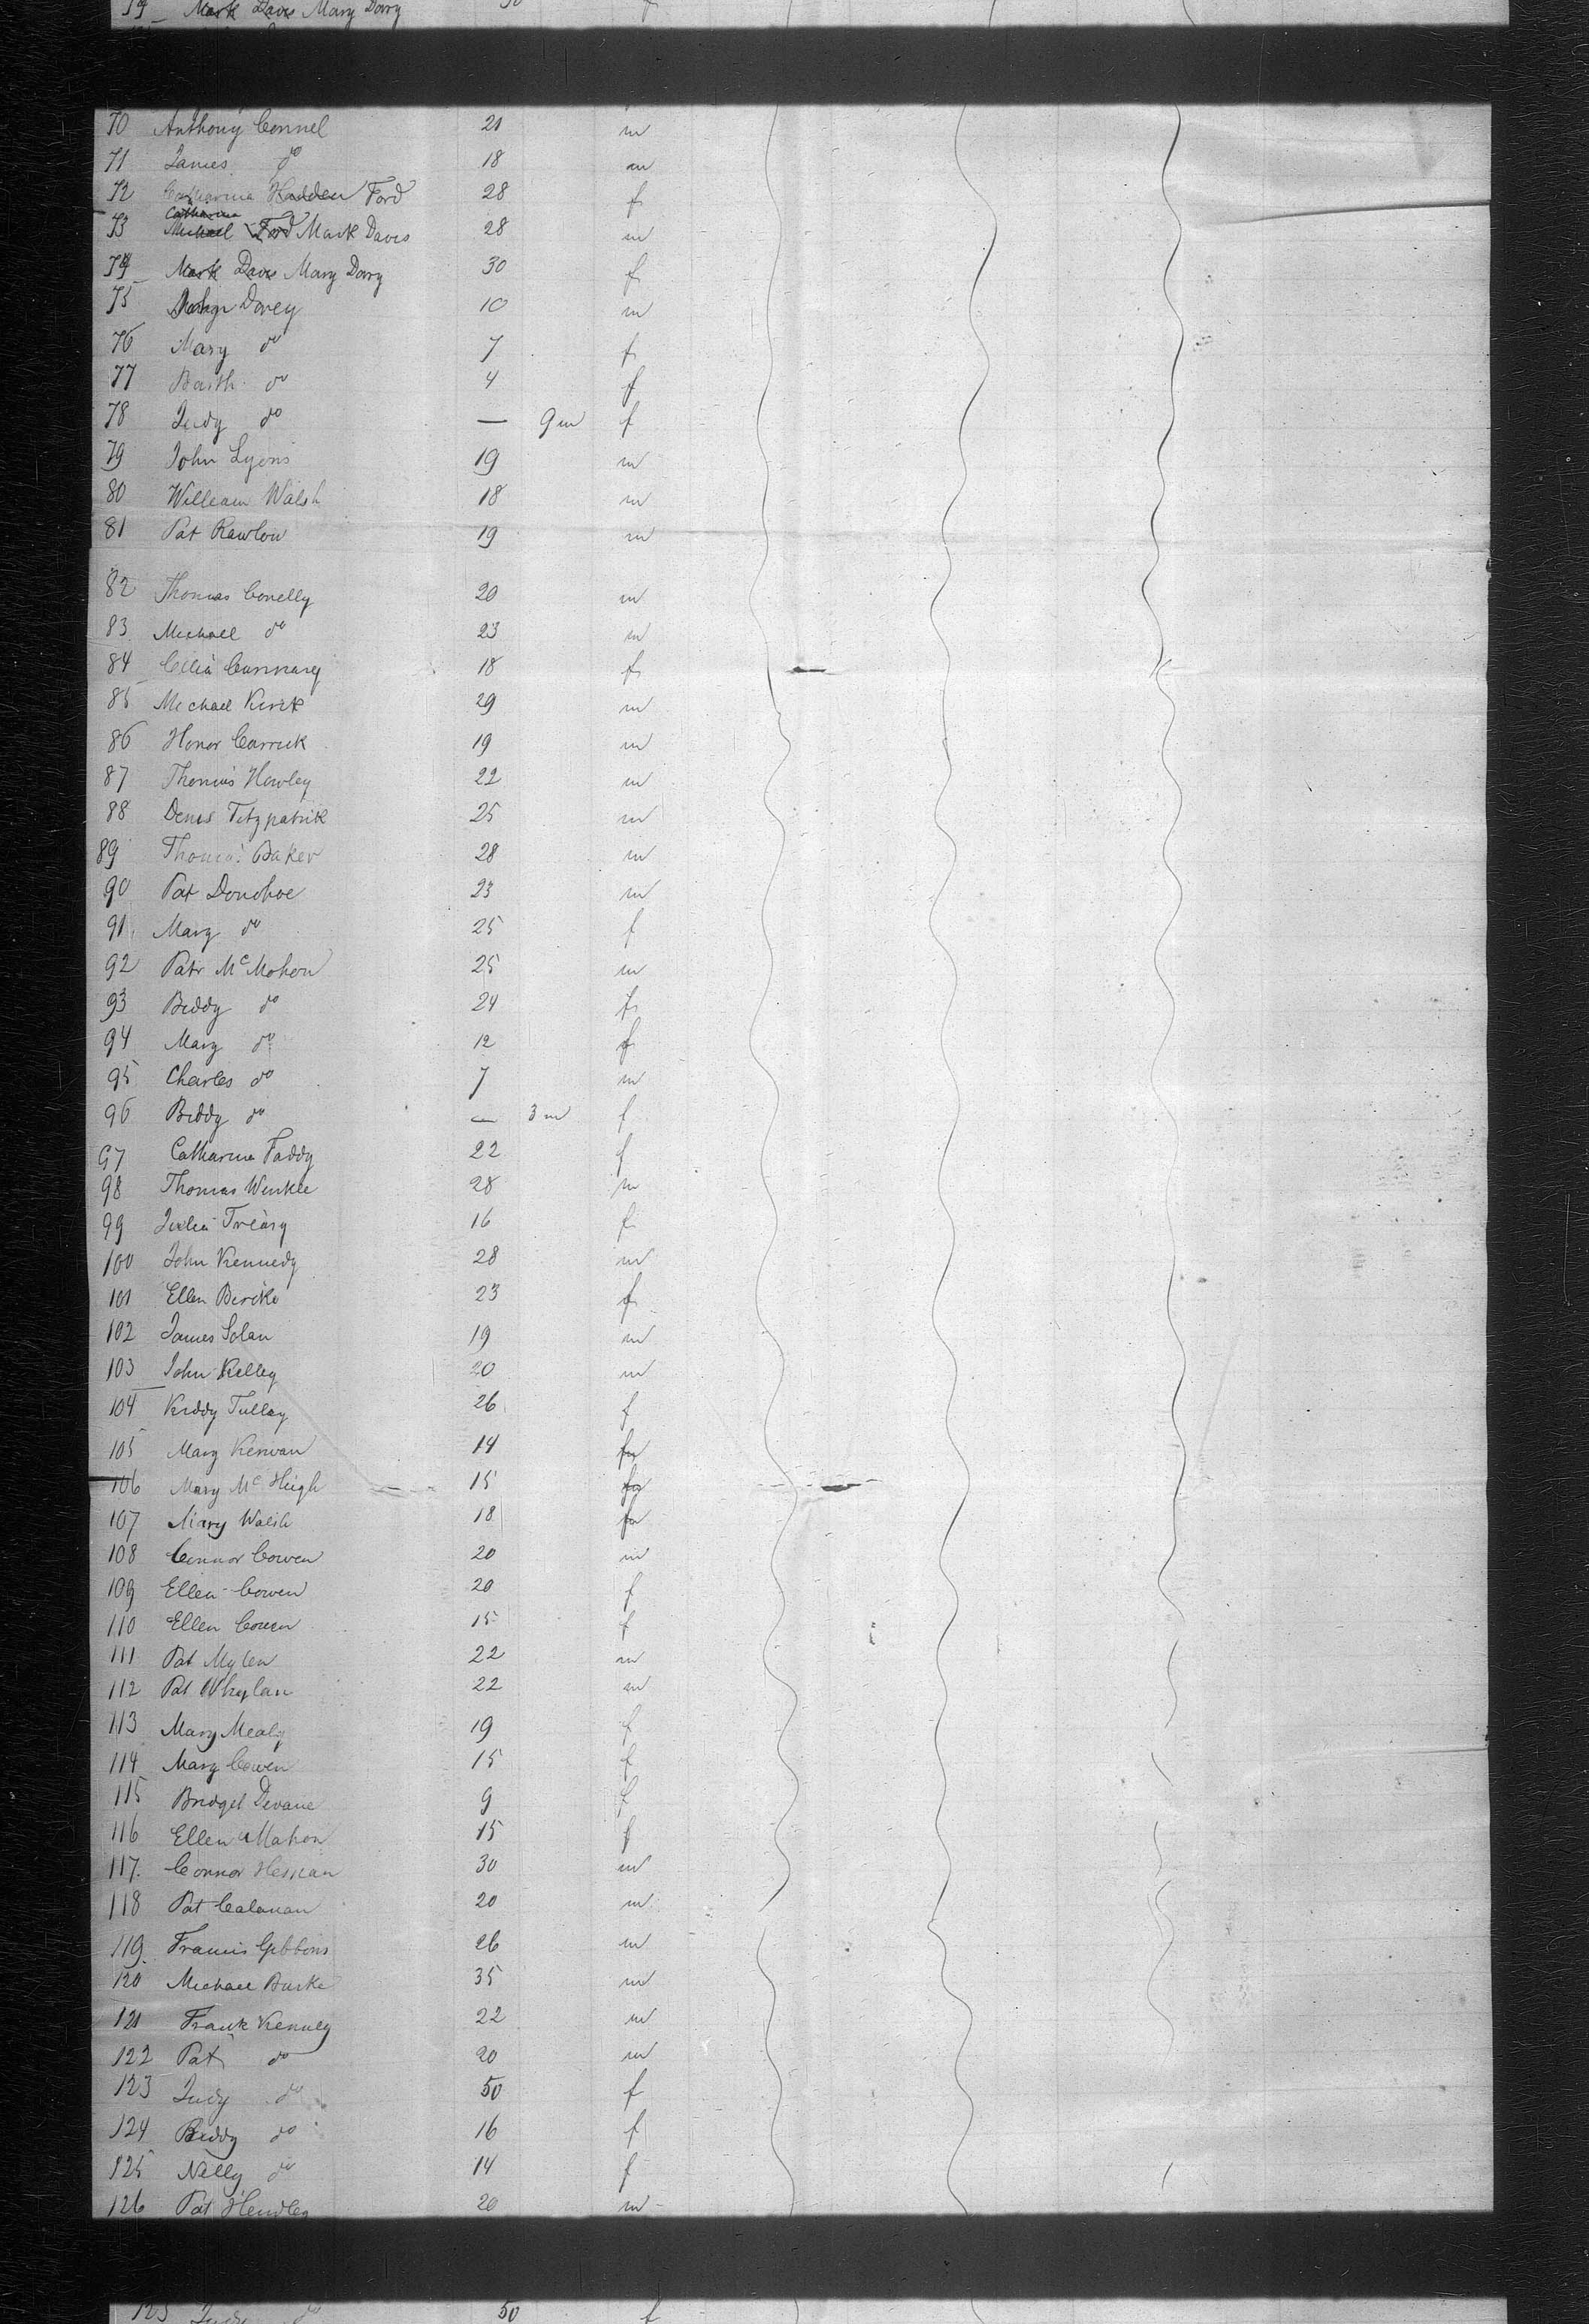 74 Mark Davis Mary Davy 30 f
70 Anthony Connel 21 m
71 James do 18 m
72 Catharina Hadden Ford 28 f
Catharina
73 Michael Ford Mark Davis 28 m
74 Mark Davis Mary Davy 30 f
75 Davey 10 m
76 Mary do 7 f
77 Barth do 4 f
78 Judy do — 9 m f
79 John Lyons 19 m
80 William Walsh 18 m
81 Pat Rawlon 19 m
82 Thomas Conelly 20 m
83 Michael do 23 m
84 Celia Cannary 18 f
85 Michael Kirik 29 m
86 Honor Carrick 19 m
87 Thomas Howley 22 m
88 Denis Fitzpatrik 25 m
89 Thomas Baker 28 m
90 Pat Donohoe 23 m
91 Mary do 25 f
92 Patr McMohon 25 m
93 Biddy do 24 f
94 Mary do 12 f
95 Charles do 7 m
96 Biddy do — 3 m f
97 Catharina Faddy 22 f
98 Thomas Winkle 28 m
99 Julia Treasy 16 f
100 John Kennedy 28 m
101 Ellen Birike 23 f
102 James Solan 19 m
103 John Kelley 20 m
104 Kiddy Tullay 26 f
105 Mary Kerwan 14 f
106 Mary McHugh 15 f
107 Mary Walsh 18 f
108 Connor Cowen 20 m
109 Ellen Cowen 20 f
110 Ellen Cowen 15 f
111 Pat Mylen 22 m
112 Pat Whylan 22 m
113 Mary Mealy 19 f
114 Mary Cowen 15 f
115 Bridget Devane 9 f
116 Ellen Mahon 15 f
117 Connor Hessian 30 m
118 Pat Calanan 20 m
119 Francis Gibbons 26 m
120 Michael Burke 35 m
121 Frank Kenney 22 m
122 Pat do 20 m
123 Judy do 50 f
124 Biddy do 16 f
125 Nelly do 14 f
126 Pat Hendley 20 m
123 Judy do 50 f